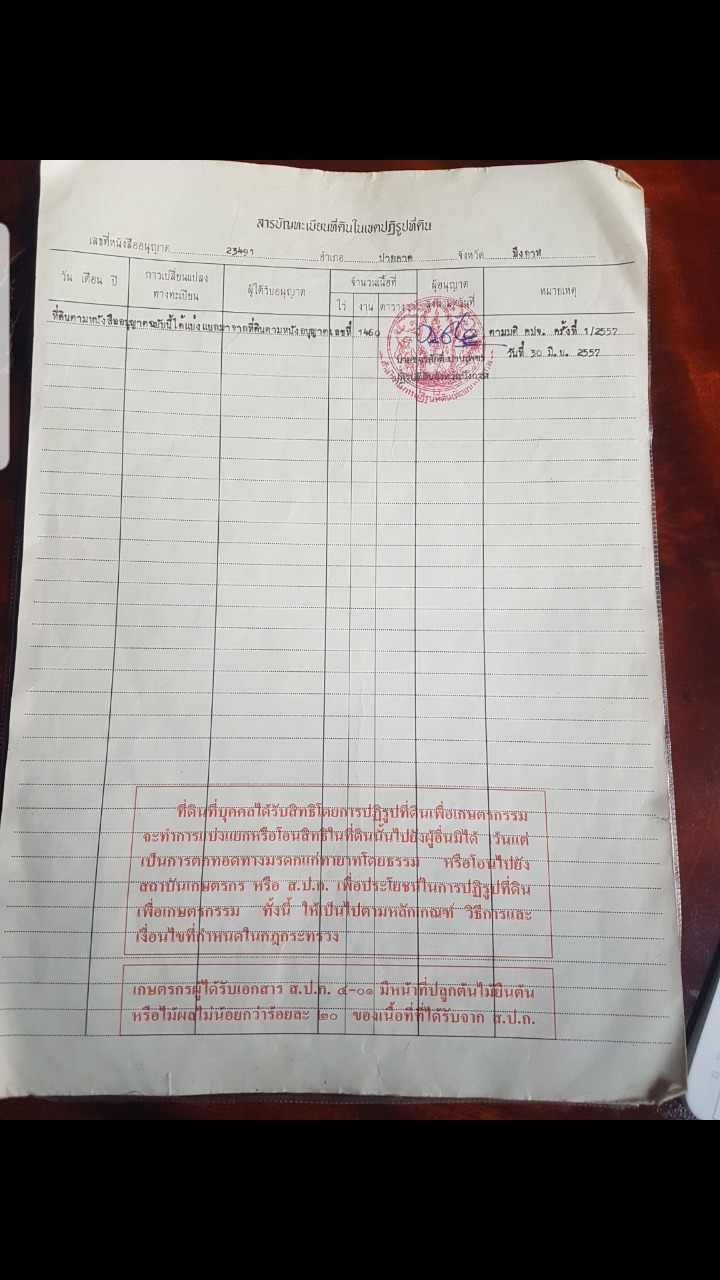 สารบัญทะเบียนที่ดินในเขตปฏิรูปที่ดิน
เลขที่หนังสืออนุญาต 23491 อำเภอ ปากคาด จังหวัด บึงกาฬ
วัน เดือน ปี การเปลี่ยนแปลงทางทะเบียน ผู้ได้รับอนุญาต จำนวนเนื้อที่ ไร่ งาน ตาราง ผู้อนุญาต หมายเหตุ
ที่ดินตามหนังสืออนุญาตฉบับนี้ได้แบ่งแยกมาจากที่ดินตามหนังอนุญาตเลขที่ 1460 ตามมติ คปจ. ครั้งที่ 1/2557
วันที่ 30 มิ.ย. 2557
ปฏิรูปที่ดินจังหวัดบึงกาฬ
ที่ดินที่บุคคลได้รับสิทธิโดยการปฏิรูปที่ดินเพื่อเกษตรกรรม
จะทำการแบ่งแยกหรือโอนสิทธิในที่ดินนั้นไปยังผู้อื่นมิได้ เว้นแต่
เป็นการตกทอดทางมรดกแก่ทายาทโดยธรรม หรือโอนไปยัง
สถาบันเกษตรกร หรือ ส.ป.ก. เพื่อประโยชน์ในการปฏิรูปที่ดิน
เพื่อเกษตรกรรม ทั้งนี้ ให้เป็นไปตามหลักเกณฑ์ วิธีการและ
เงื่อนไขที่กำหนดในกฎกระทรวง
เกษตรกรผู้ได้รับเอกสาร ส.ป.ก. ๔-๐๑ มีหน้าที่ปลูกต้นไม้ยืนต้น
หรือไม้ผลไม่น้อยกว่าร้อยละ ๒๐ ของเนื้อที่ที่ได้รับจาก ส.ป.ก.